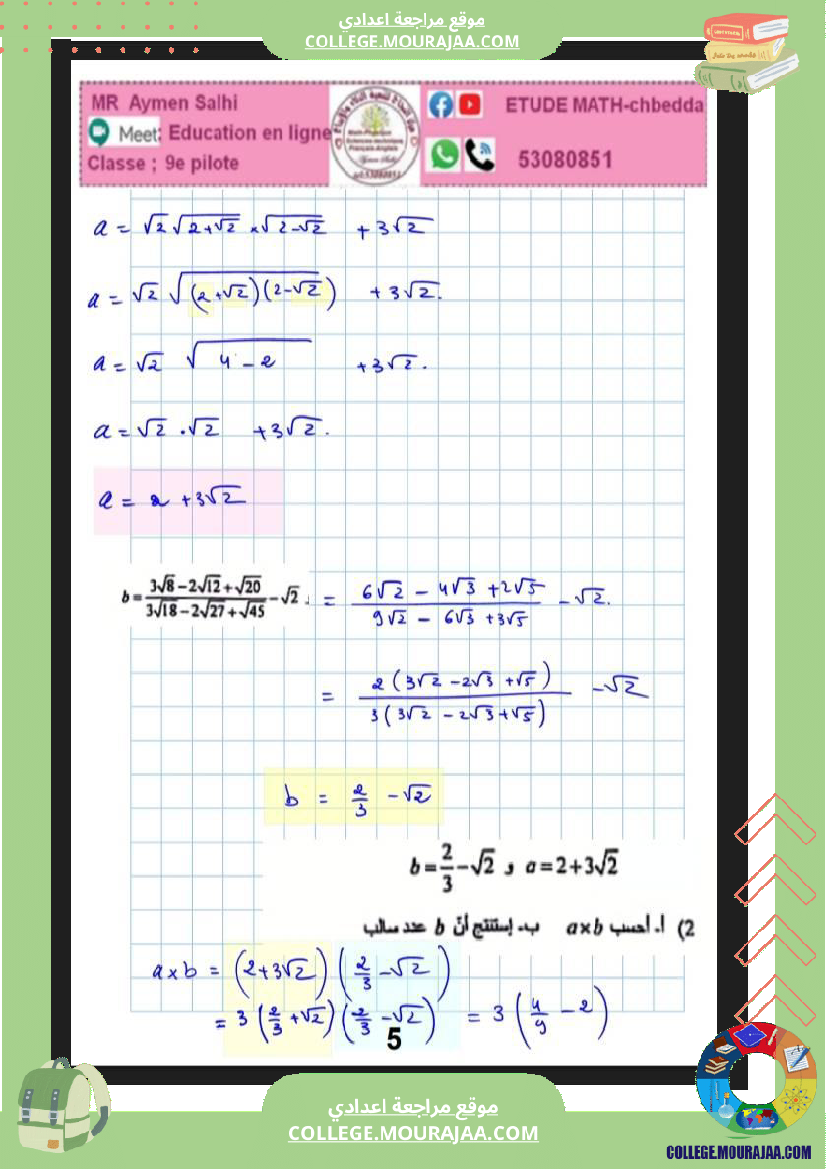 موقع مراجعة اعدادي
COLLEGE.MOURAJAA.COM
MR Aymen Salhi
Meet: Education en ligne
Classe ; 9e pilote
ETUDE MATH-chbedda
53080851
a = √2 √(2+√2) × √(2-√2) + 3√2
a = √2 √((2+√2)(2-√2)) + 3√2.
a = √2 √(4-2) + 3√2.
a = √2 . √2 + 3√2.
a = 2 + 3√2
b = (3√8 - 2√12 + √20)/(3√18 - 2√27 + √45) - √2 . = (6√2 - 4√3 + 2√5)/(9√2 - 6√3 + 3√5) - √2.
= 2(3√2 - 2√3 + √5)/3(3√2 - 2√3 + √5) - √2
b = 2/3 - √2
b = 2/3 - √2 و a = 2 + 3√2
2) أ. أحسب a×b ب. إستنتج أنّ b عدد سالب
a×b = (2+3√2)(2/3 - √2)
= 3(2/3 + √2)(2/3 - √2) = 3(4/9 - 2)
5
موقع مراجعة اعدادي
COLLEGE.MOURAJAA.COM
COLLEGE.MOURAJAA.COM